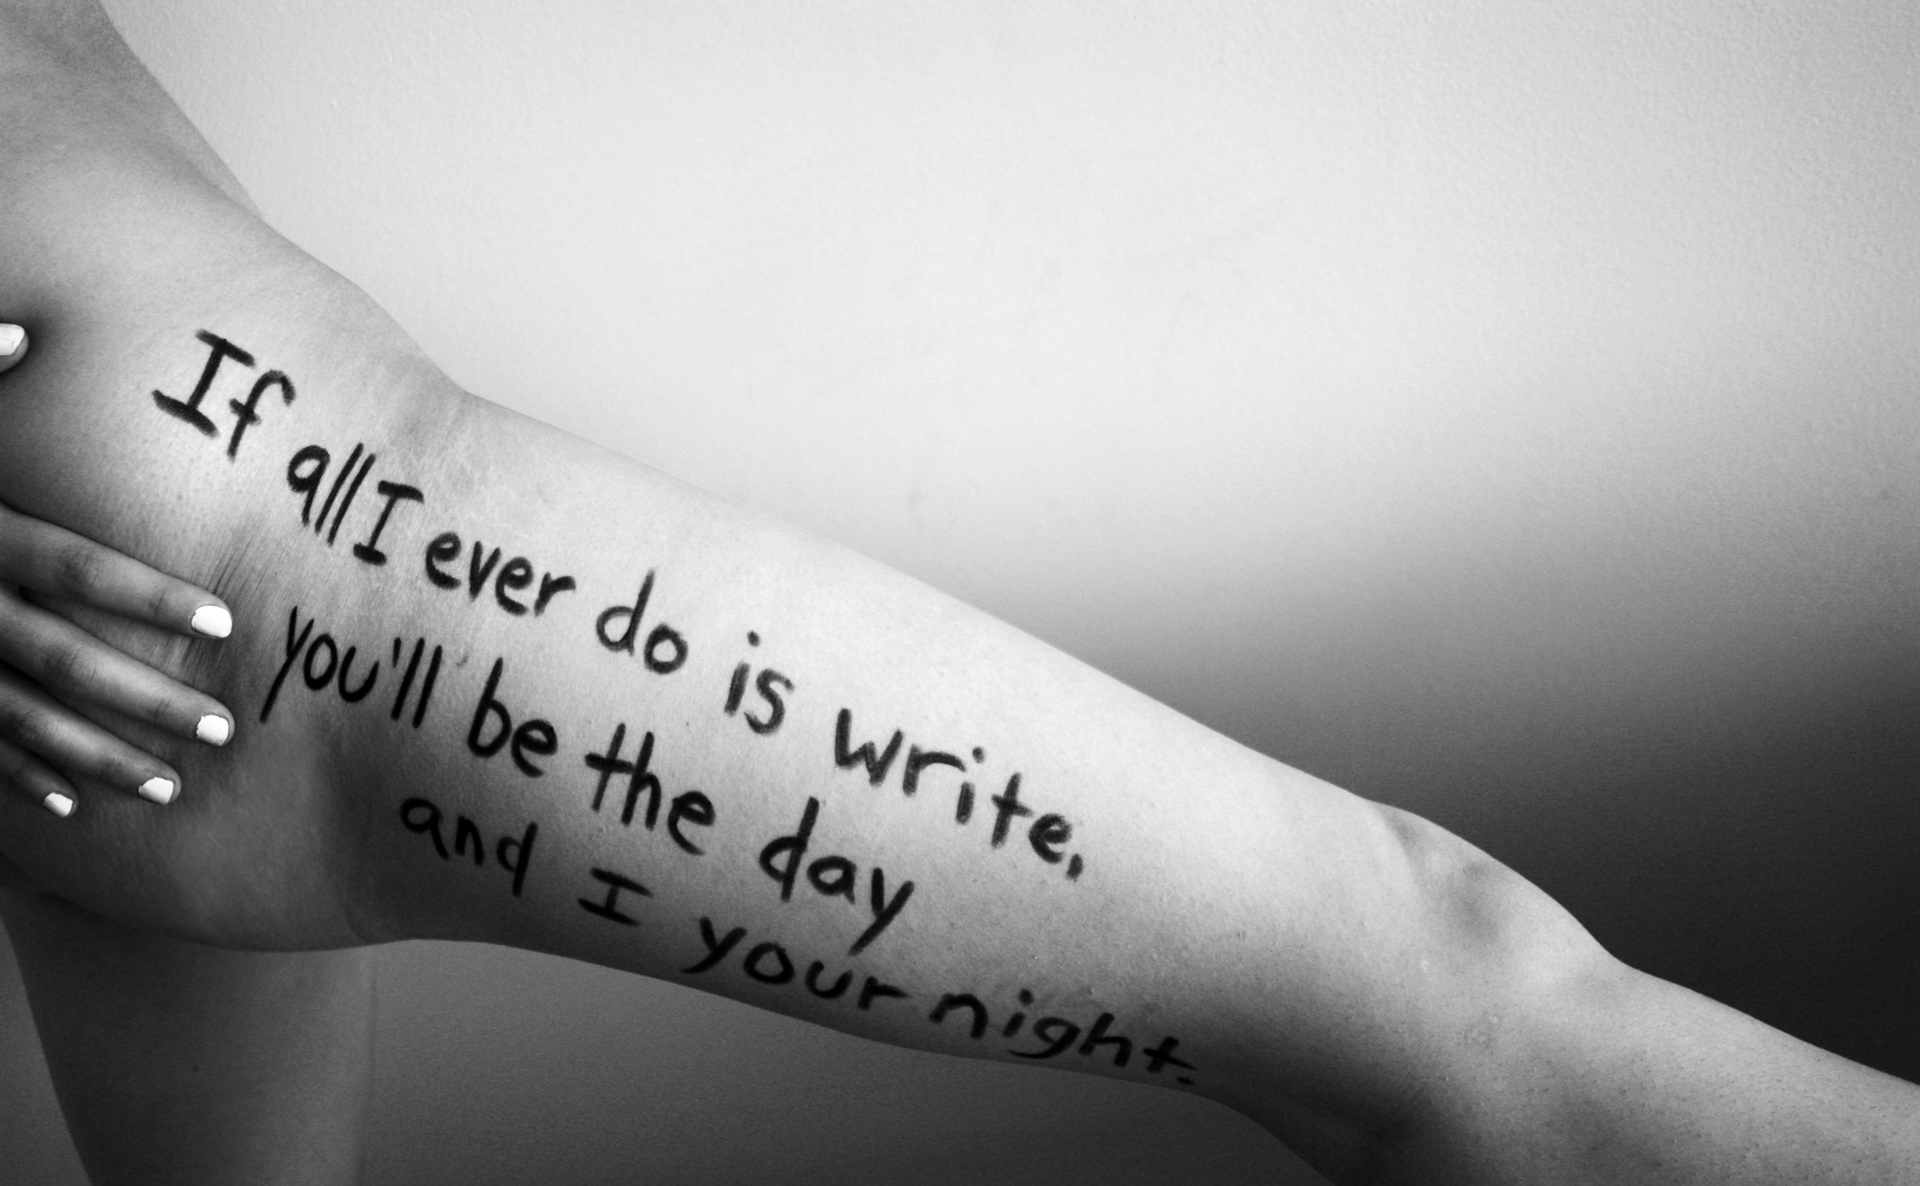 If all I ever do is write,
you'll be the day
and I your night.